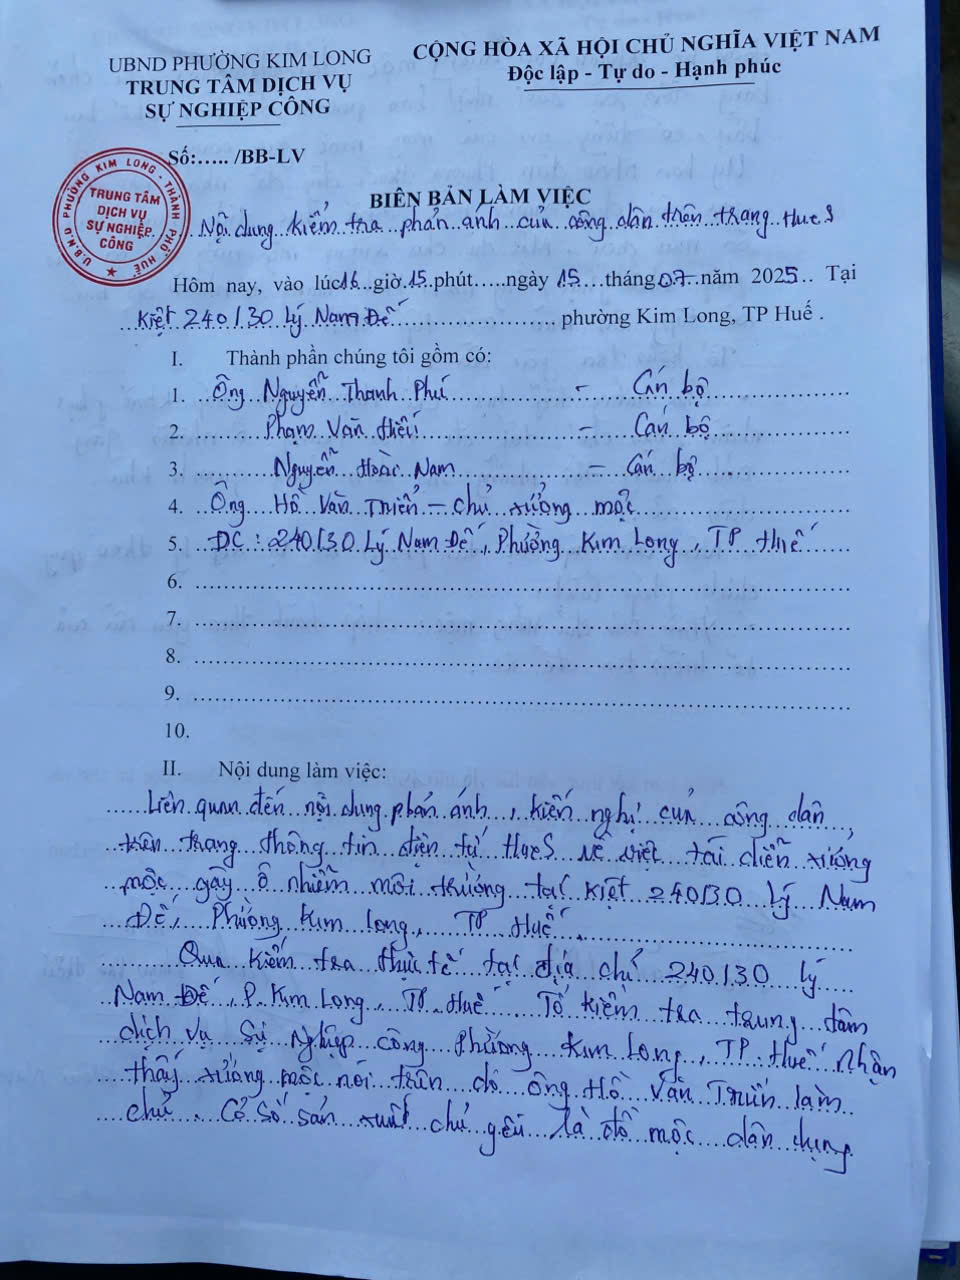 UBND PHƯỜNG KIM LONG
TRUNG TÂM DỊCH VỤ
SỰ NGHIỆP CÔNG
CỘNG HÒA XÃ HỘI CHỦ NGHĨA VIỆT NAM
Độc lập - Tự do - Hạnh phúc
Số:..... /BB-LV
U.B.N.D PHƯỜNG KIM LONG - THÀNH PHỐ HUẾ
TRUNG TÂM
DỊCH VỤ
SỰ NGHIỆP
CÔNG
BIÊN BẢN LÀM VIỆC
Nội dung kiểm tra phản ánh của công dân trên trang HueS
Hôm nay, vào lúc 16 giờ 15 phút.....ngày 15 tháng 07 năm 2025.. Tại
Kiệt 240/30 Lý Nam Đế phường Kim Long, TP Huế .
I. Thành phần chúng tôi gồm có:
1. Ông Nguyễn Thanh Phú - Cán bộ
2. Phạm Văn Hiếu - Cán bộ
3. Nguyễn Hoài Nam - Cán bộ
4. Ông Hồ Văn - Chủ xưởng mộc
5. ĐC: 240/30 Lý Nam Đế, Phường Kim Long, TP Huế
6.
7.
8.
9.
10.
II. Nội dung làm việc:
Liên quan đến nội dung phản ánh, kiến nghị của công dân,
trên trang thông tin điện tử HueS về việt tái diễn xưởng
mộc gây ô nhiễm môi trường tại Kiệt 240/30 Lý Nam
Đế, Phường Kim Long, TP Huế
Qua kiểm tra thực tế tại địa chỉ 240/30 Lý
Nam Đế, P. Kim Long, TP. Huế Tổ kiểm tra trung tâm
dịch vụ Sự Nghiệp công Phường Kim Long, TP. Huế nhận
thấy xưởng mộc nói trên do ông Hồ Văn làm
chủ. Cơ sở sản xuất chủ yếu là đồ mộc dân dụng